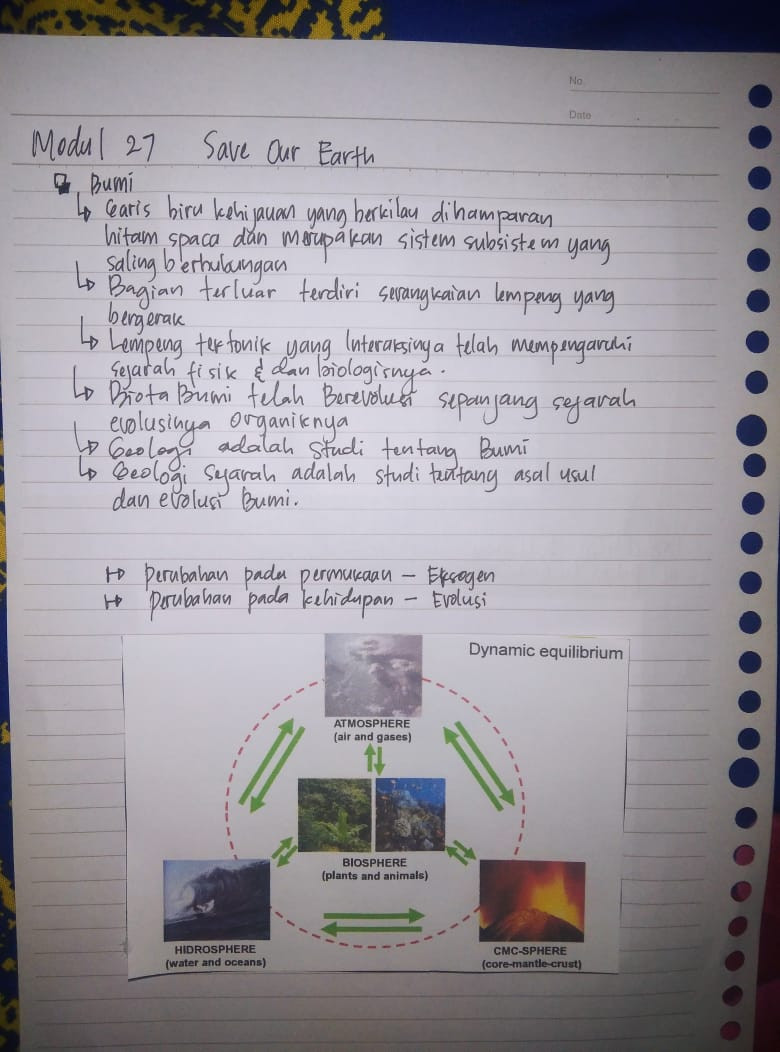 No.
Date
Modul 27 Save Our Earth
Bumi
↳ Garis biru kehijauan yang berkilau dihamparan
hitam spaca dan merupakan sistem subsistem yang
saling berhubungan
↳ Bagian terluar terdiri serangkaian lempeng yang
bergerak
↳ Lempeng tektonik yang Interaksinya telah mempengaruhi
sejarah fisik & dan biologisnya.
↳ Biota Bumi telah Berevolusi sepanjang sejarah
evolusinya organiknya
↳ Geologi adalah studi tentang Bumi
↳ Geologi Sejarah adalah studi tentang asal usul
dan evolusi Bumi.
↦ Perubahan pada permukaan – Eksogen
↦ Perubahan pada kehidupan – Evolusi
Dynamic equilibrium
ATMOSPHERE
(air and gases)
BIOSPHERE
(plants and animals)
HIDROSPHERE
(water and oceans)
CMC-SPHERE
(core-mantle-crust)